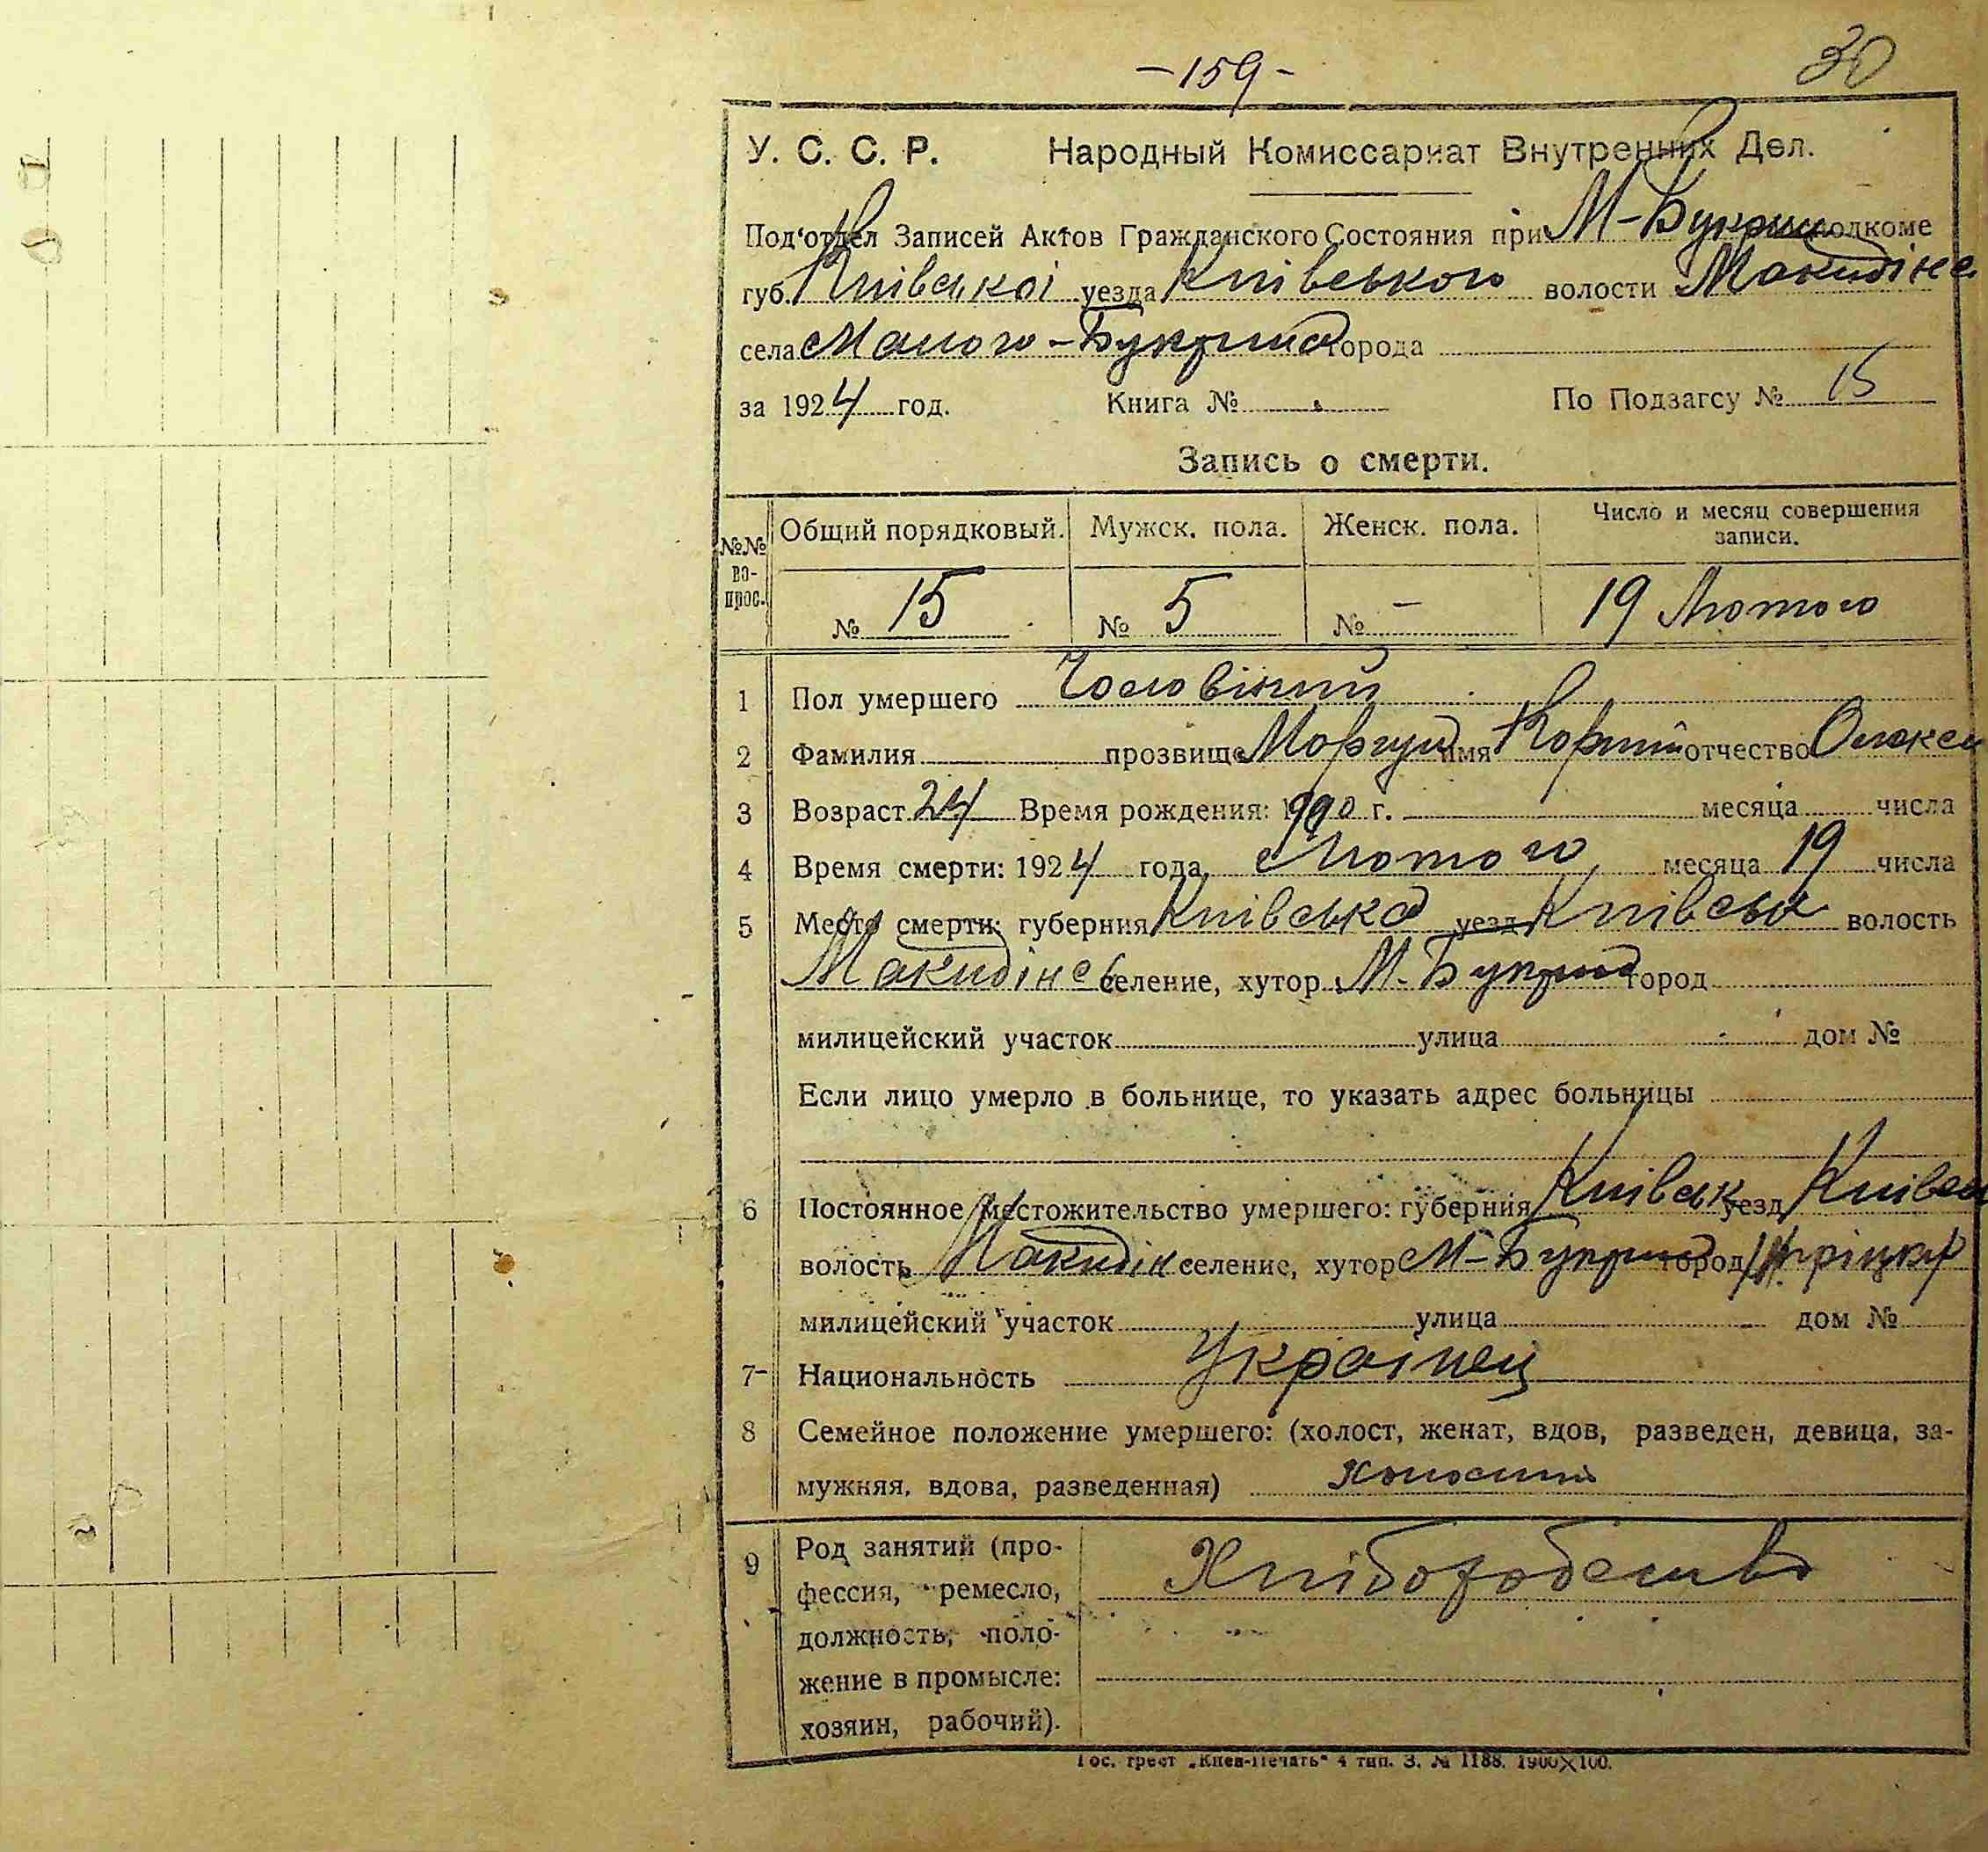 30
-159-
У. С. С. Р. Народный Комиссариат Внутренних Дел.
Под'отдел Записей Актов Гражданского Состояния при М-Букрин исполкоме
губ. Київської уезда Київського волости Макидінс
села Малого-Букрина города
за 1924 год. Книга № По Подзагсу № 15
Запись о смерти.
№№ во-прос. Общий порядковый. Мужск. пола. Женск. пола. Число и месяц совершения записи.
№ 15 № 5 № — 19 Лютого
1 Пол умершего Чоловічий
2 Фамилия прозвище Моргун имя Корній отчество Олексі
3 Возраст 24 Время рождения: 1900 г. месяца числа
4 Время смерти: 1924 года, Лютого месяца 19 числа
5 Место смерти: губерния Київська уезд Київськ волость
Макидінс селение, хутор М. Букрин город
милицейский участок улица дом №
Если лицо умерло в больнице, то указать адрес больницы
6 Постоянное местожительство умершего: губерния Київськ уезд Київсь
волость Макидін селение, хутор М-Букрин город
милицейский участок улица дом №
7 Национальность Українец
8 Семейное положение умершего: (холост, женат, вдов, разведен, девица, за-
мужняя, вдова, разведенная) холостий
9 Род занятий (про-
фессия, ремесло, Хліборобство
должность, поло-
жение в промысле:
хозяин, рабочий).
Гос. трест „Киев-Печать" 4 тип. З. № 1188. 1900×100.